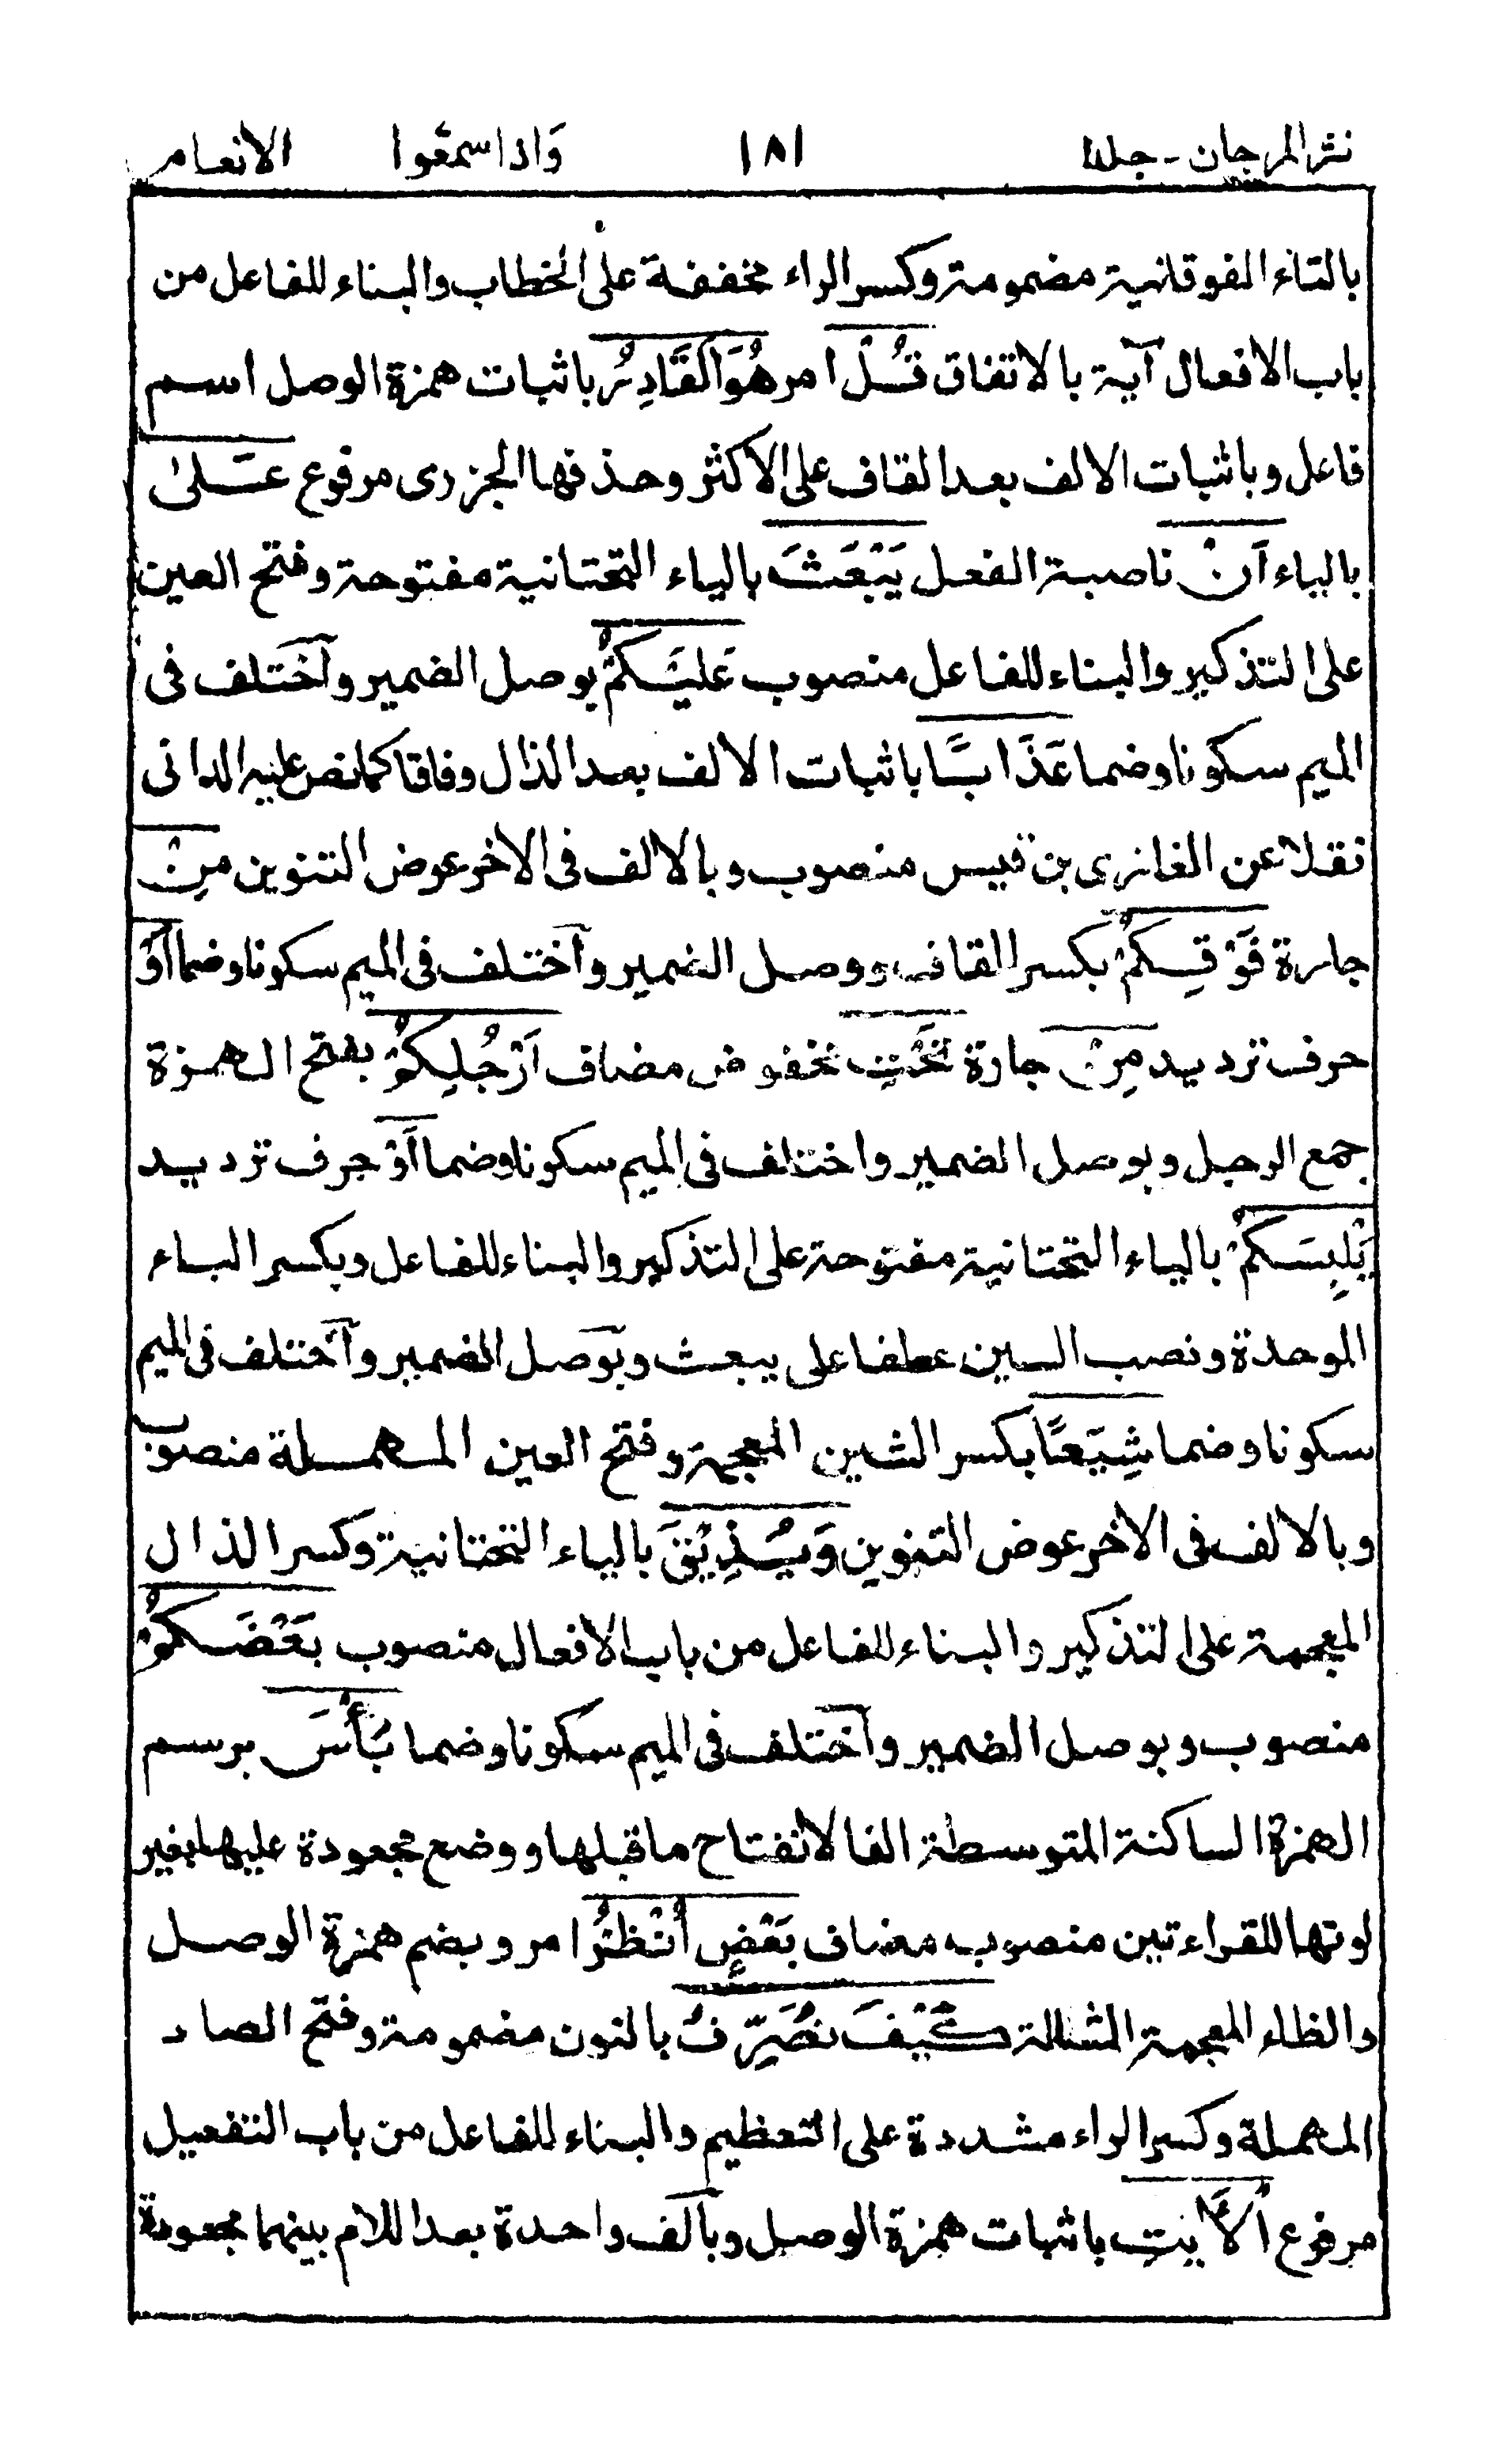 نثر المرجان - جلد ١٨١ وَاذا سمعوا الانعام
بالتاء الفوقانية مضمومة وكسر الراء مخففة على الخطاب والبناء للفاعل من
باب الافعال آية بالاتفاق قُلْ امر هُوَ الْقَادِرُ باثبات همزة الوصل اسم
فاعل وباثبات الالف بعد القاف على الاكثر وحذفها الجزرى مرفوع عَلىٰ
بالياء اَنْ ناصبة الفعل يَبْعَثَ بالياء التحتانية مفتوحة وفتح العين
على التذكير والبناء للفاعل منصوب عَلَيْكُمْ بوصل الضمير واختلف فى
الميم سكونا وضما عَذَابًا باثبات الالف بعد الذال وفاقا كما نص عليه الدانى
نقلا عن الغازى بن قيس منصوب وبالالف فى الاخر عوض التنوين مِنْ
جارة فَوْقِكُمْ بكسر القاف ووصل الضمير واختلف فى الميم سكونا وضما اَوْ
حرف ترديد مِنْ جارة تَحْتِ مخفوض مضاف اَرْجُلِكُمْ بفتح الهمزة
جمع الرجل وبوصل الضمير واختلف فى الميم سكونا وضما اَوْ حرف ترديد
يَلْبِسَكُمْ بالياء التحتانية مفتوحة على التذكير والبناء للفاعل وبكسر الباء
الموحدة ونصب السين عطفا على يبعث وبوصل الضمير واختلف فى الميم
سكونا وضما شِيَعًا بكسر الشين المعجمة وفتح العين المهملة منصوب
وبالالف فى الاخر عوض التنوين وَيُذِيْقَ بالياء التحتانية وكسر الذال
المعجمة على التذكير والبناء للفاعل من باب الافعال منصوب بَعْضَكُمْ
منصوب وبوصل الضمير واختلف فى الميم سكونا وضما بَأْسَ برسم
الهمزة الساكنة المتوسطة الفا لانفتاح ما قبلها ووضع مجعودة عليها بغير
لونها للقراءتين منصوب مضاف بَعْضٍ اُنْظُرْ امر وبضم همزة الوصل
والظاء المعجمة المشالة كَيْفَ نُصَرِّفُ بالنون مضمومة وفتح الصاد
المهملة وكسر الراء مشددة على التعظيم والبناء للفاعل من باب التفعيل
مرفوع الْاٰيٰتِ باثبات همزة الوصل وبالف واحدة بعد اللام بينهما مجعودة